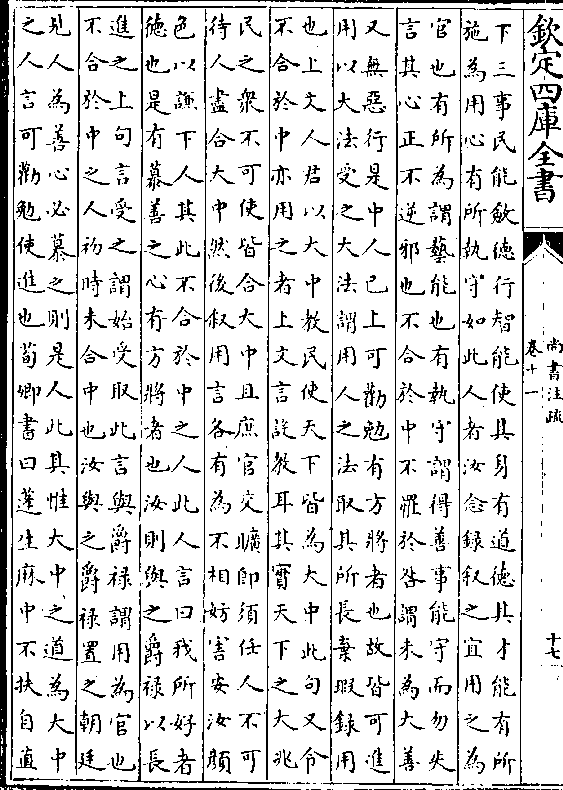 欽定四庫全書
尚書注疏
卷十一
十七
下三事民能斂德行智能使其身有道德其才能有所
施為用心有所執守如此人者汝念錄叙之宜用之為
官也有所為謂藝能也有執守謂得善事能守而勿失
言其心正不逆邪也不合於中不罹於咎謂未為大善
又無惡行是中人已上可勸勉有方將者也故皆可進
用以大法受之大法謂用人之法取其所長棄瑕錄用
也上文人君以大中教民使天下皆為大中此句又令
不合於中亦用之者上文言設教耳其實天下之大兆
民之衆不可使皆合大中且庶官交曠即須任人不可
待人盡合大中然後叙用言各有為不相妨害安汝顔
色以謙下人其此不合於中之人此人言曰我所好者
德也是有慕善之心有方將者也汝則與之爵祿以長
進之上句言受之謂始受取此言與爵祿謂用為官也
不合於中之人初時未合中也汝與之爵祿置之朝廷
見人為善心必慕之則是人此其惟大中之道為大中
之人言可勸勉使進也荀卿書曰蓬生麻中不扶自直